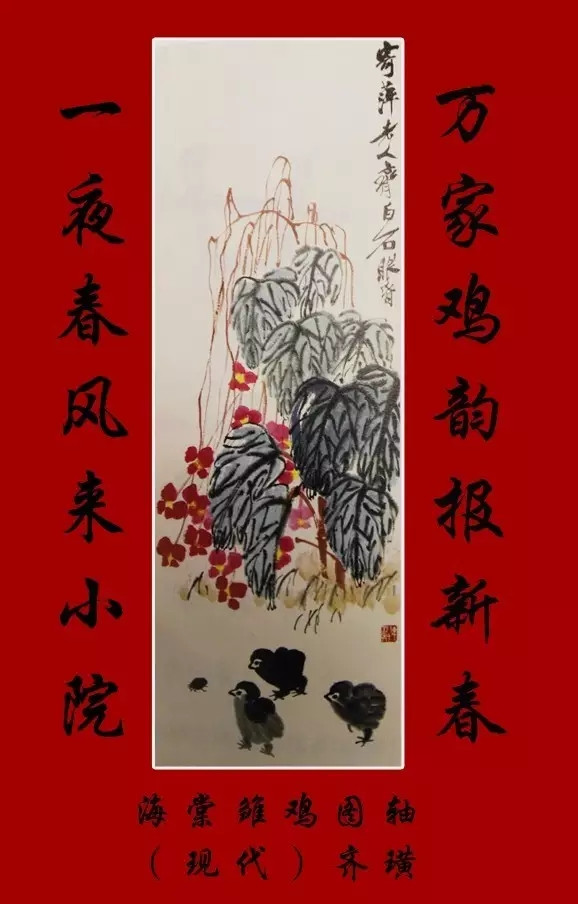 万家鸡韵报新春
寄萍老人齊白石眼昏
一夜春风来小院
海棠雏鸡图轴
（现代）齐璜